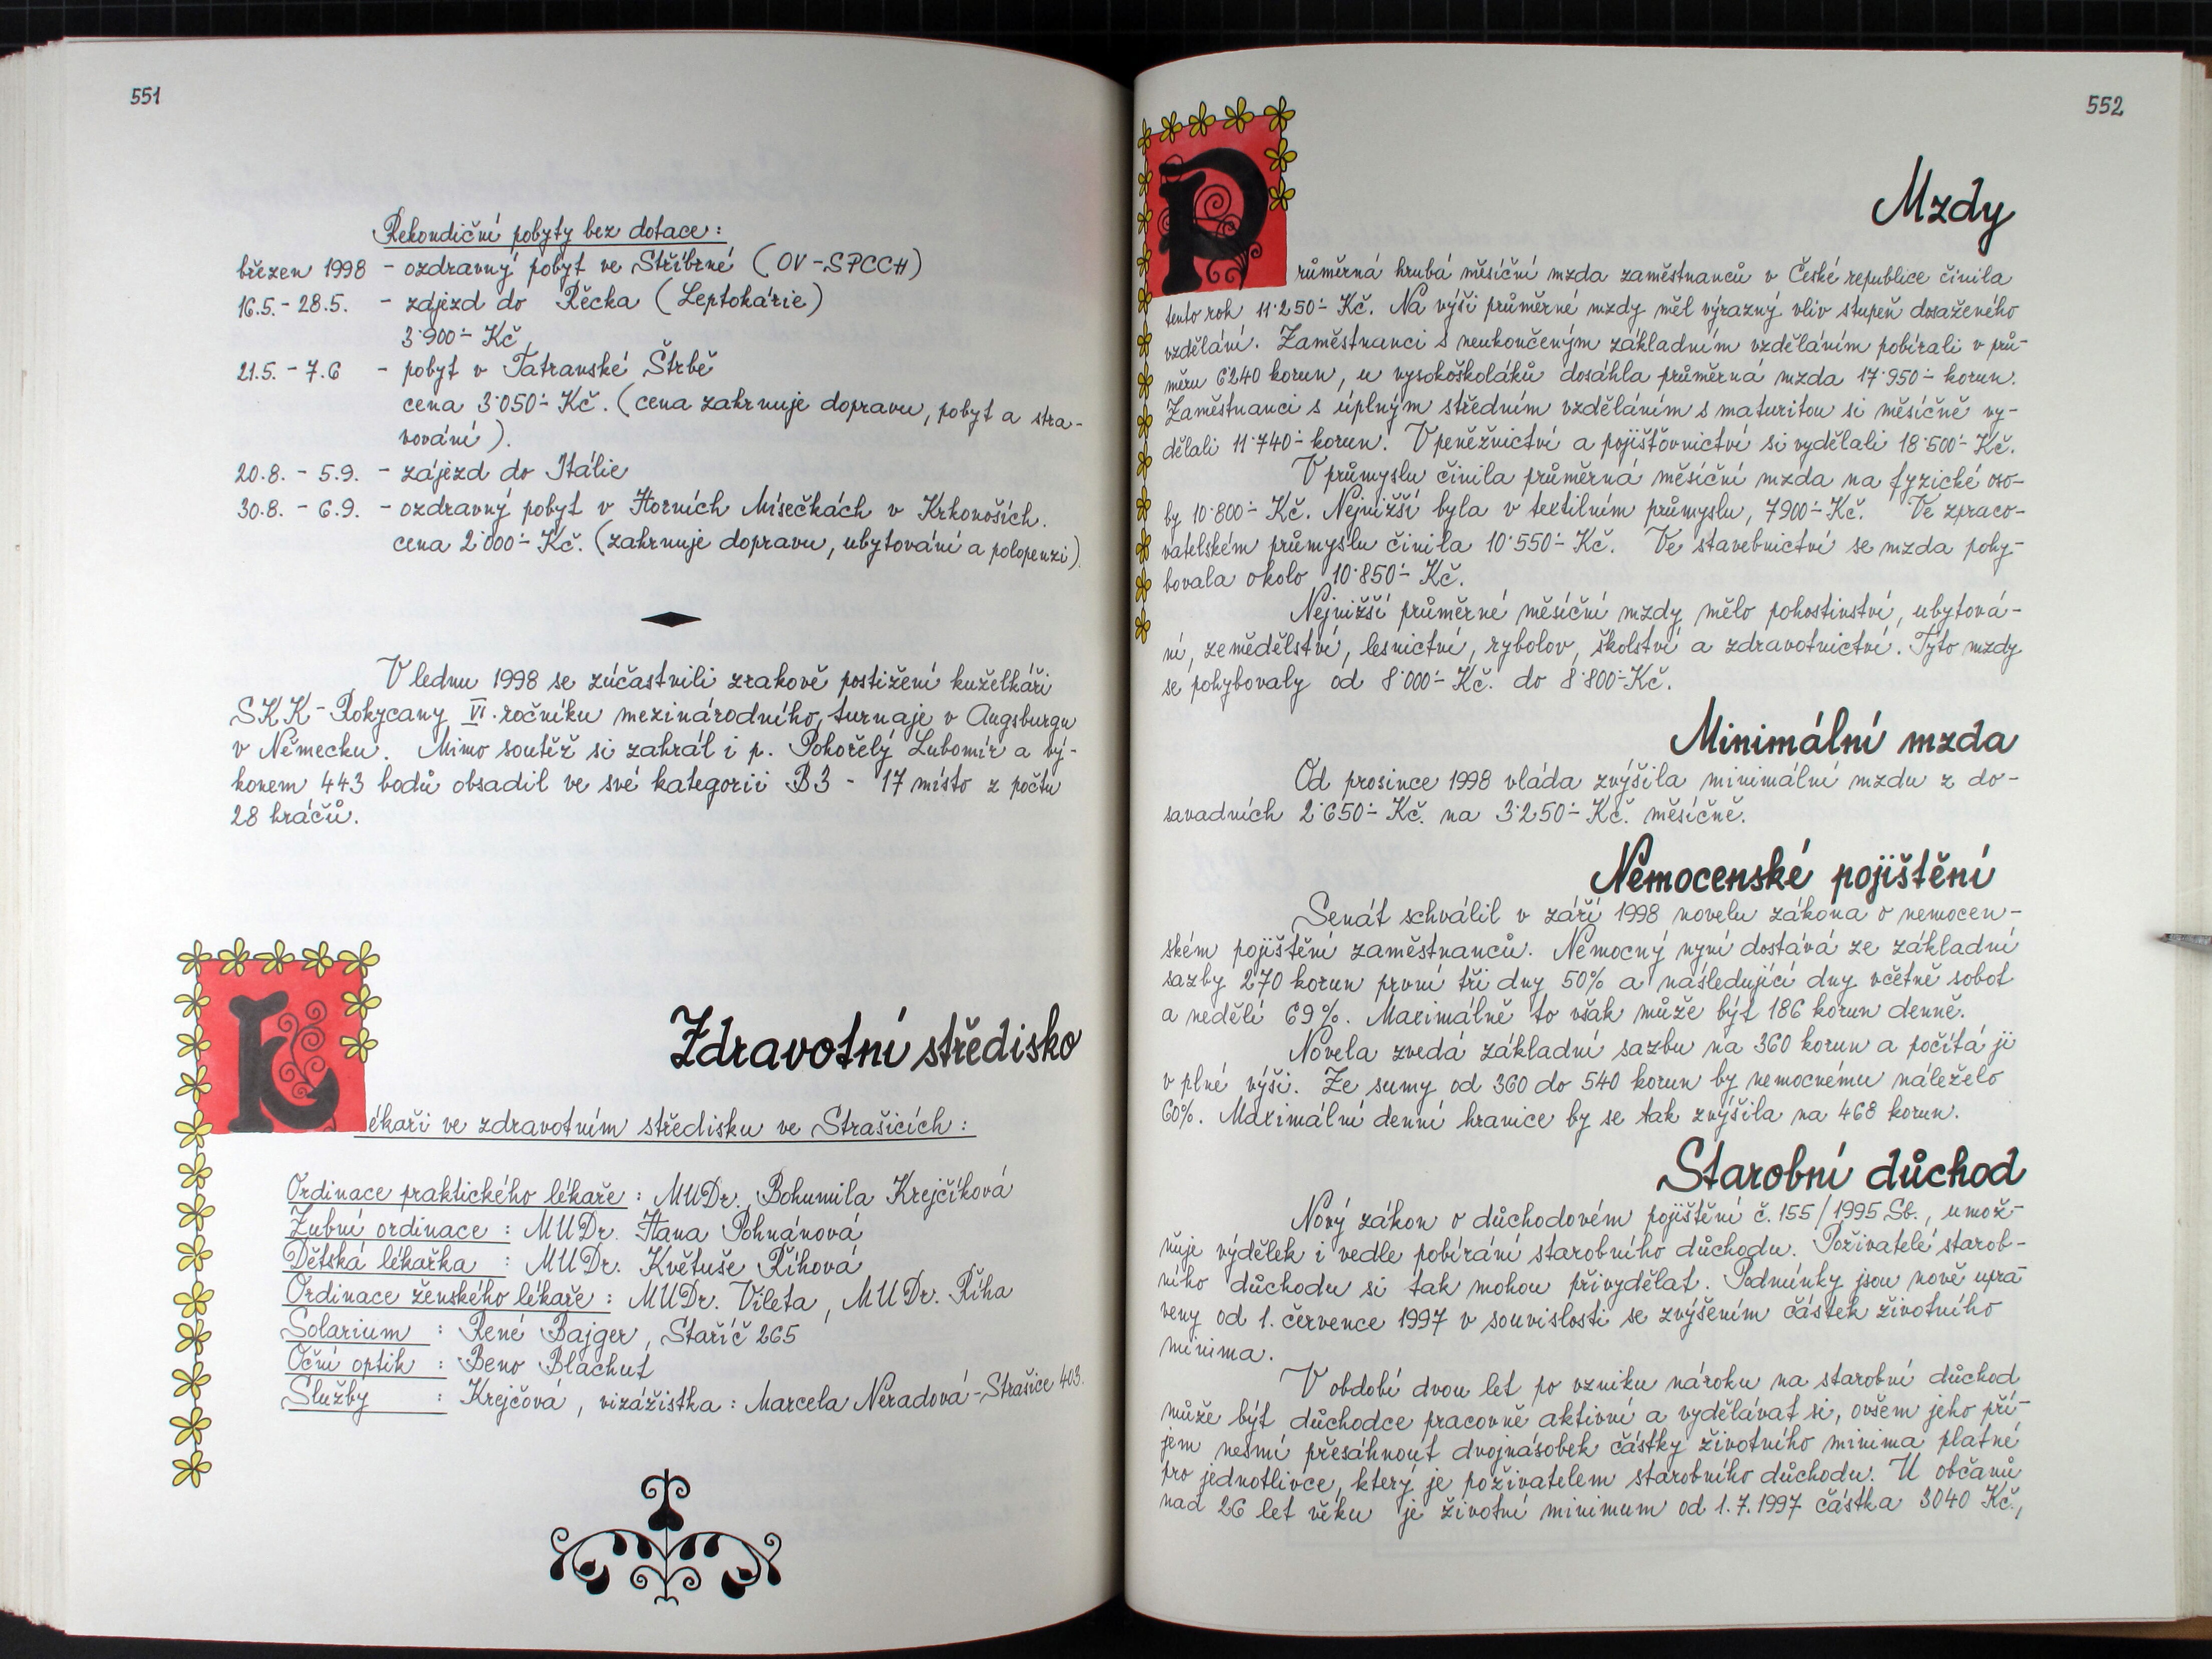 551
Rekondiční pobyty bez dotace:
březen 1998 - ozdravný pobyt ve Stříbrné (OV-SPCCH)
16.5. - 28.5. - zájezd do Řecka (Leptokárie)
3˙900˙- Kč
21.5. - 7.6 - pobyt v Tatranské Štrbě
cena 3˙050˙- Kč. (cena zahrnuje dopravu, pobyt a stra-
vování).
20.8. - 5.9. - zájezd do Itálie
30.8. - 6.9. - ozdravný pobyt v Horních Mísečkách v Krkonoších.
cena 2˙000˙- Kč. (zahrnuje dopravu, ubytování a polopenzi).
V lednu 1998 se zúčastnili zrakově postižení kuželkáři
SKK-Rokycany VI. ročníku mezinárodního turnaje v Augsburgu
v Německu. Mimo soutěž si zahrál i p. Pohořelý Lubomír a vý-
konem 443 bodů obsadil ve své kategorii B3 - 17 místo z počtu
28 hráčů.
Zdravotní středisko
Lékaři ve zdravotním středisku ve Strašicích:
Ordinace praktického lékaře: MUDr. Bohumila Krejčíková
Zubní ordinace: MUDr. Hana Pohnánová
Dětská lékařka : MUDr. Květuše Říhová
Ordinace ženského lékaře: MUDr. Vileta, MUDr. Říha
Solarium : René Bajger, Staříč 265
Oční optik : Beno Blachut
Služby : Krejčová, vizážistka: Marcela Neradová-Strašice 403.
552
Mzdy
Průměrná hrubá měsíční mzda zaměstnanců v České republice činila
tento rok 11˙250˙- Kč. Na výši průměrné mzdy měl výrazný vliv stupeň dosaženého
vzdělání. Zaměstnanci s neukončeným základním vzděláním pobírali v prů-
měru 6240 korun, u vysokoškoláků dosáhla průměrná mzda 17˙950˙- korun.
Zaměstnanci s úplným středním vzděláním s maturitou si měsíčně vy-
dělali 11˙740˙- korun. V peněžnictví a pojišťovnictví si vydělali 18˙500˙- Kč.
V průmyslu činila průměrná měsíční mzda na fyzické oso-
by 10˙800˙- Kč. Nejnižší byla v textilním průmyslu, 7900˙- Kč. Ve zpraco-
vatelském průmyslu činila 10˙550˙- Kč. Ve stavebnictví se mzda pohy-
bovala okolo 10˙850˙- Kč.
Nejnižší průměrné měsíční mzdy mělo pohostinství, ubytová-
ní, zemědělství, lesnictví, rybolov, školství a zdravotnictví. Tyto mzdy
se pohybovaly od 8˙000˙- Kč. do 8˙800˙- Kč.
Minimální mzda
Od prosince 1998 vláda zvýšila minimální mzdu z do-
savadních 2˙650˙- Kč. na 3˙250˙- Kč. měsíčně.
Nemocenské pojištění
Senát schválil v září 1998 novelu zákona o nemocen-
ském pojištění zaměstnanců. Nemocný nyní dostává ze základní
sazby 270 korun první tři dny 50% a následující dny včetně sobot
a nedělí 69%. Maximálně to však může být 186 korun denně.
Novela zvedá základní sazbu na 360 korun a počítá ji
v plné výši. Ze sumy od 360 do 540 korun by nemocnému náleželo
60%. Maximální denní hranice by se tak zvýšila na 468 korun.
Starobní důchod
Nový zákon o důchodovém pojištění č. 155/1995 Sb., umož-
ňuje výdělek i vedle pobírání starobního důchodu. Poživatelé starob-
ního důchodu si tak mohou přivydělat. Podmínky jsou nově upra
veny od 1. července 1997 v souvislosti se zvýšením částek životního
minima.
V období dvou let po vzniku nároku na starobní důchod
může být důchodce pracovně aktivní a vydělávat si, ovšem jeho pří-
jem nesmí přesáhnout dvojnásobek částky životního minima platné
pro jednotlivce, který je poživatelem starobního důchodu. U občanů
nad 26 let věku je životní minimum od 1.7.1997 částka 3040 Kč,